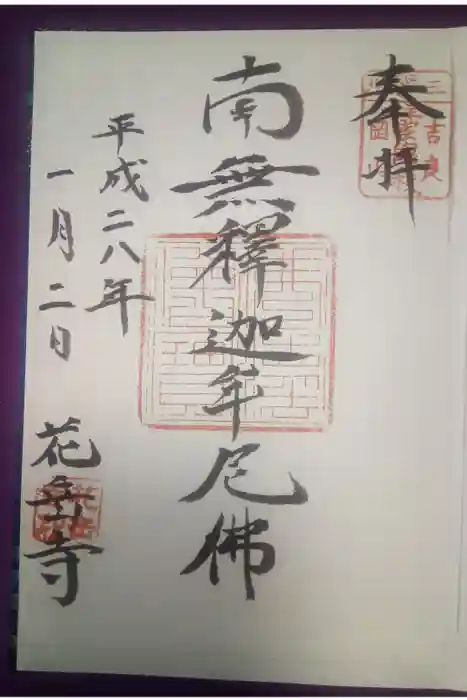 奉拝
三
吉良
南無釋迦牟尼佛
平成二八年
一月二日
花岳寺